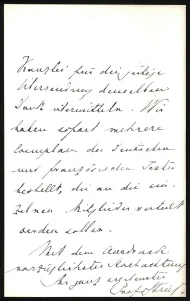 Kanzlei für die jetzige
Übersendung denselben
Dank übermitteln. Wir
haben sofort mehrere
Exemplare des deutschen
und französischen Textes
bestellt, die an die ein-
zelnen Mitglieder verteilt
werden sollen.
Mit dem Ausdruck
vorzüglichster Hochachtung
Ihr ganz ergebenster